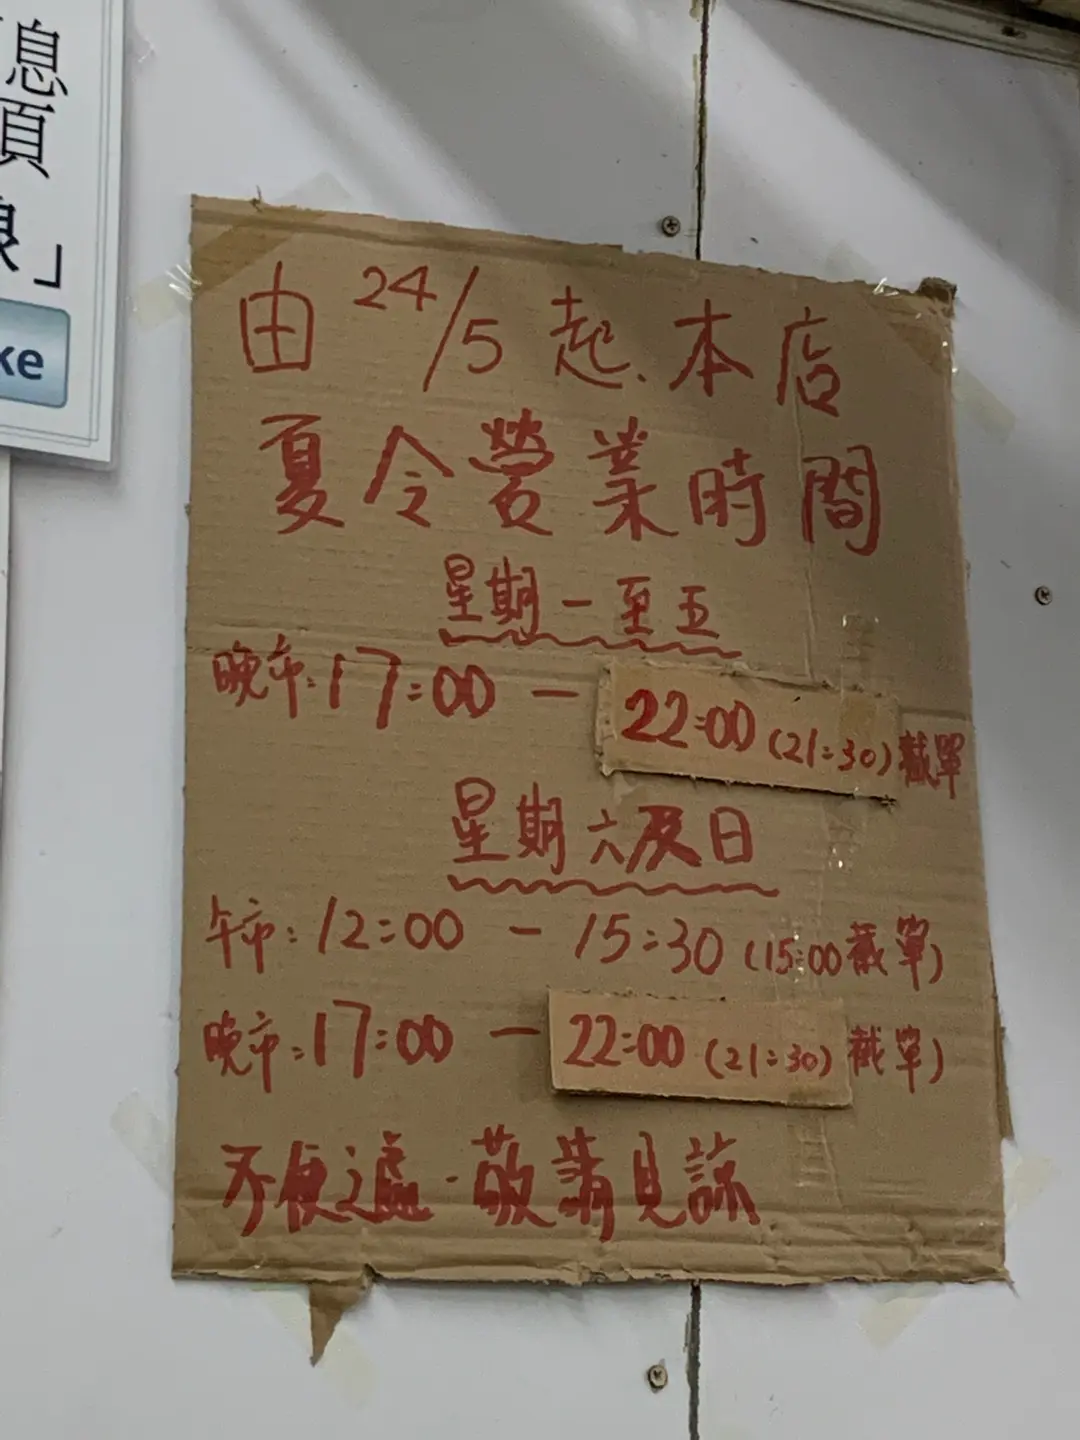 息
頁
」
ke
由24/5起.本店
夏令營業時間
星期一至五
晚市:17:00 — 22:00 (21:30)截單
星期六及日
午市:12:00 — 15:30 (15:00截單)
晚市:17:00 — 22:00 (21:30)截單)
不便之處·敬請見諒